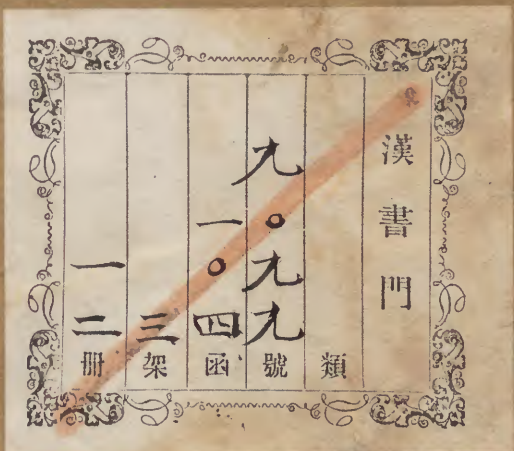 漢書門
類
九〇九九號
一〇四函
三架
一二冊